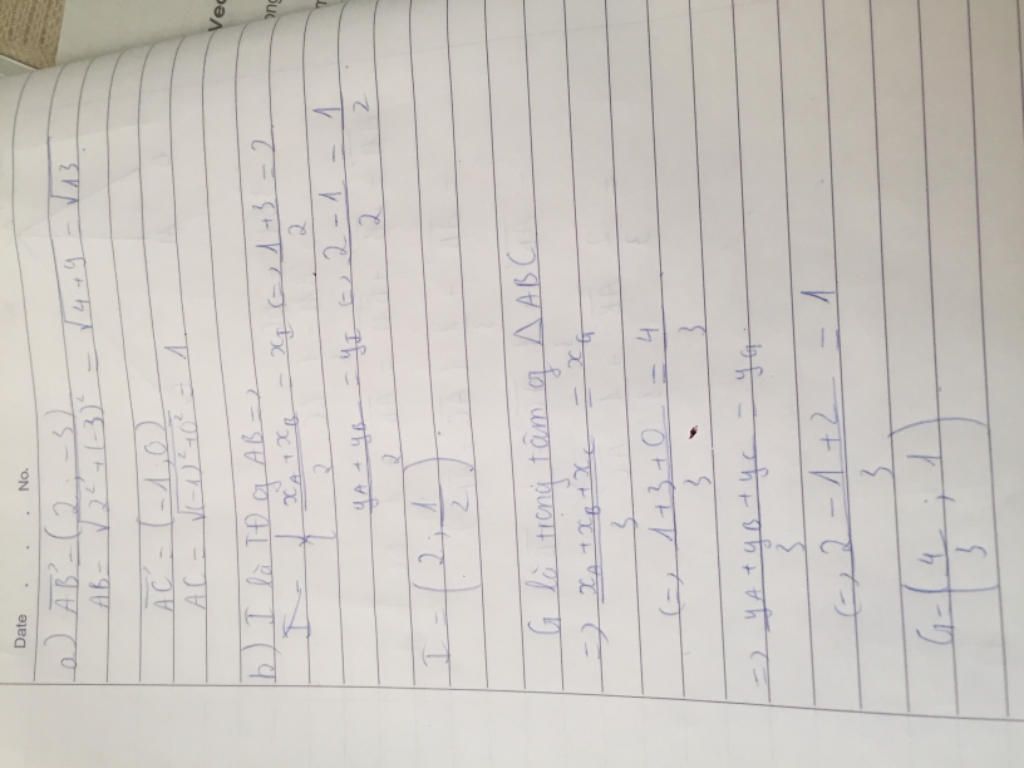 Date . . . No.
a) AB→ = (2; -3)
AB = √2² + (-3)² = √4+9 = √13
AC→ = (-1; 0)
AC = √(-1)² + 0² = 1
b) I là TĐ of AB =>
I - { (xA + xB)/2 = xI <=> (1+3)/2 = 2
(yA + yB)/2 = yI <=> (2-1)/2 = 1/2
I = (2; 1/2)
G là trọng tâm of △ABC
=> (xA + xB + xC)/3 = xG
<=> (1+3+0)/3 = 4/3
=> (yA + yB + yC)/3 = yG
<=> (2-1+2)/3 = 1
G = (4/3; 1)